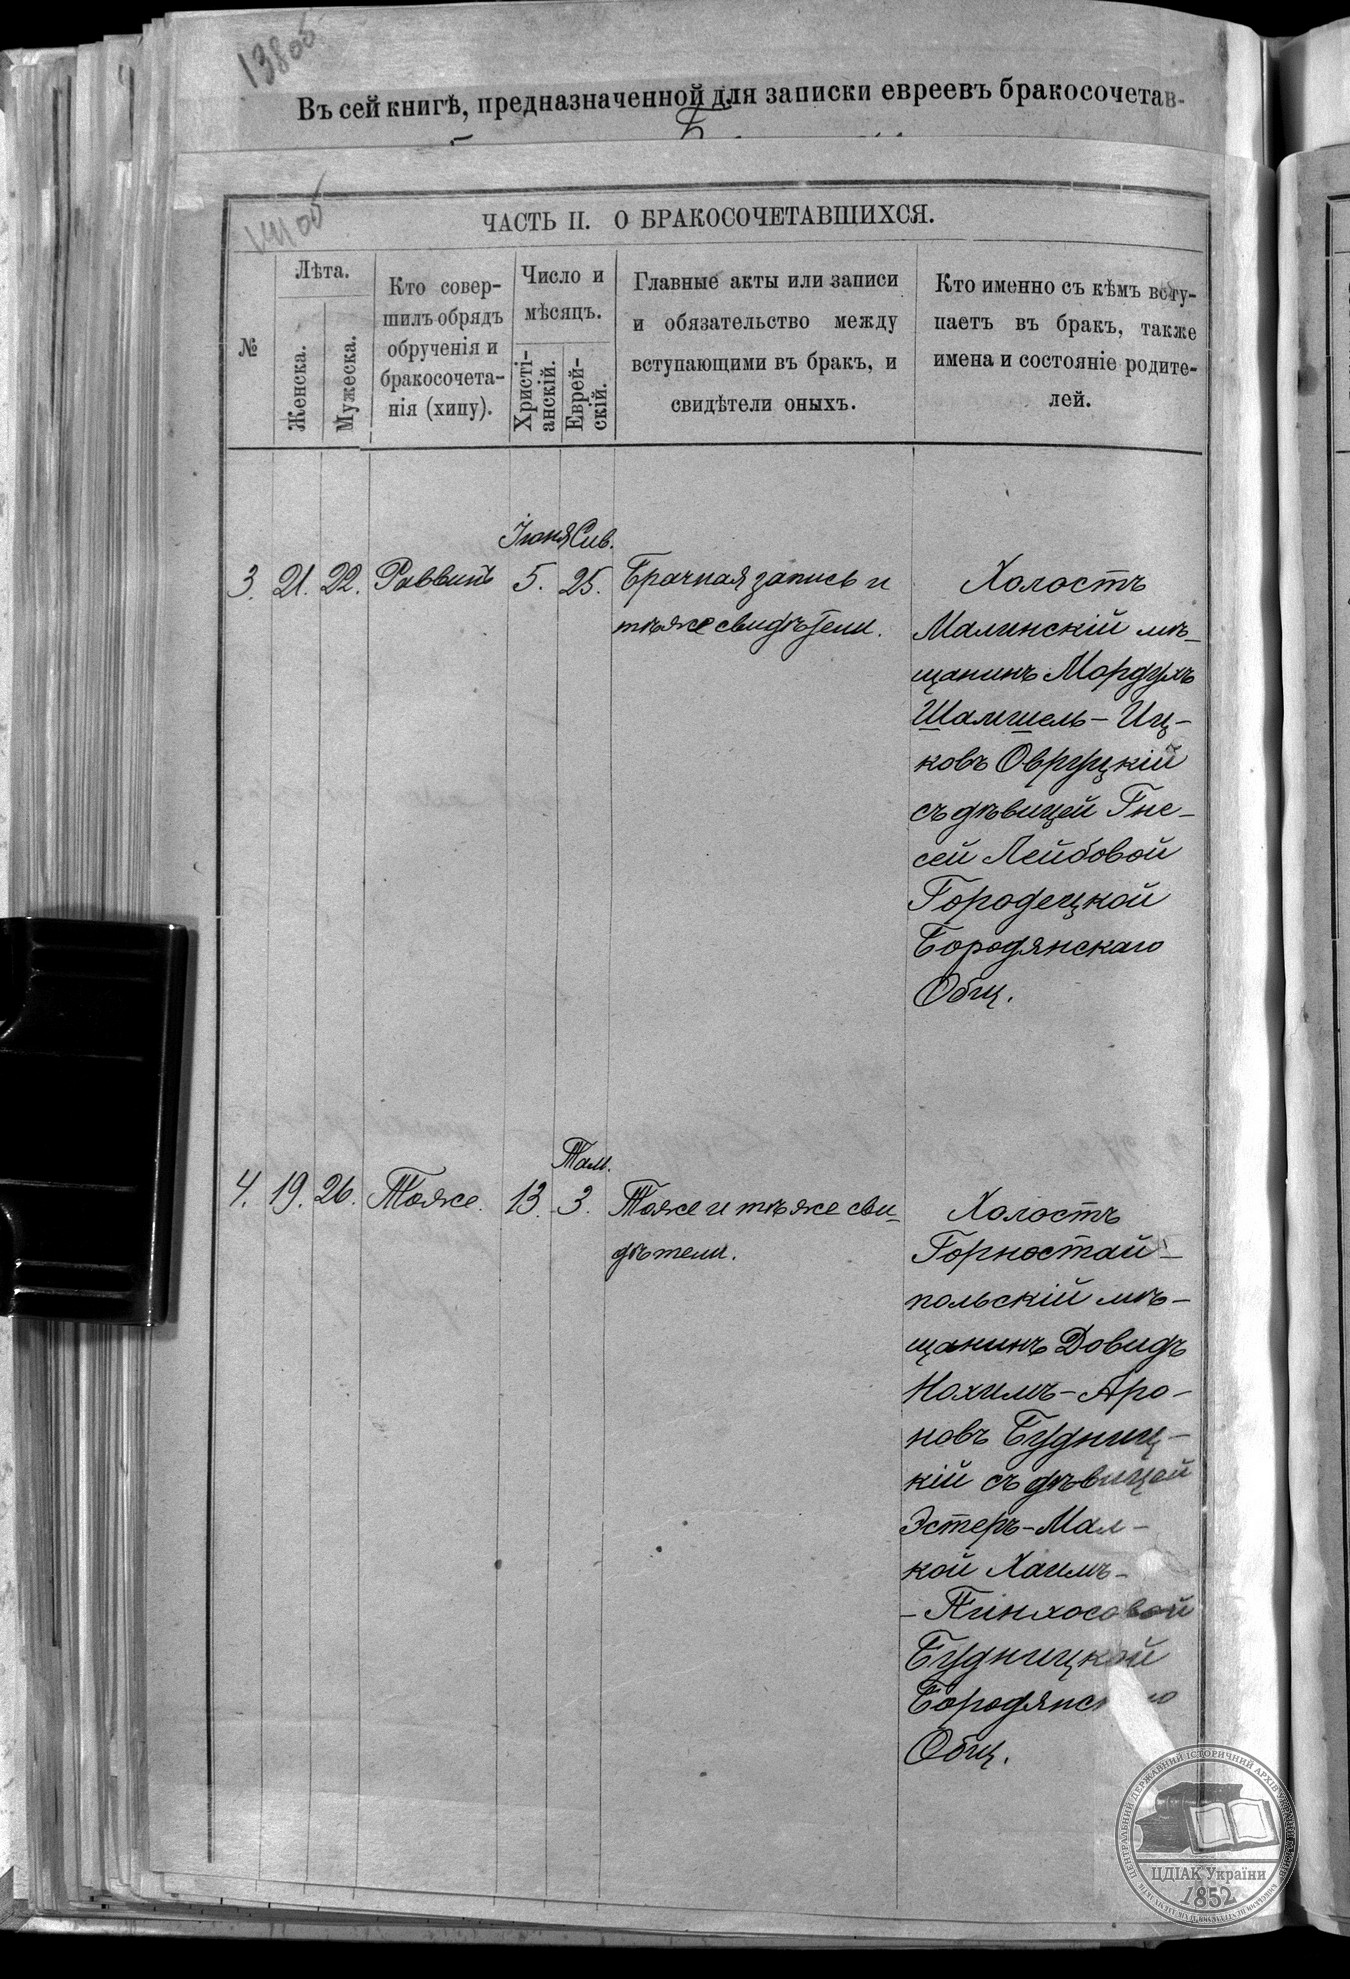 138об
Въ сей книгѣ, предназначенной для записки евреевъ бракосочетав-
ЧАСТЬ II. О БРАКОСОЧЕТАВШИХСЯ.
№
Лѣта.
Женска.
Мужеска.
Кто совер-
шилъ обрядъ
обрученія и
бракосочета-
нія (хипу).
Число и
мѣсяцъ.
Христі-
анскій.
Еврей-
скій.
Главные акты или записи
и обязательство между
вступающими въ бракъ, и
свидѣтели оныхъ.
Кто именно съ кѣмъ всту-
паетъ въ бракъ, также
имена и состояніе родите-
лей.
Іюня Сив.
3. 21. 22. Раввинъ 5. 25. Брачная запись и
тѣже свидѣтели.
Холостъ
Малинскій мѣ-
щанинъ Мордухъ
Шамшель-Иц-
ковъ Овруцкій
съ дѣвицей Гне-
сей Лейбовой
Городецкой
Бородянскаго
Общ.
Там.
4. 19. 26. Тоже. 13. 3. Тоже и тѣже сви-
дѣтели.
Холостъ
Горностай-
польскій мѣ-
щанинъ Довидъ
Нохимъ-Аро-
новъ Будниц-
кій съ дѣвицей
Эстеръ-Мал-
кой Хаимъ-
-Пинхосовой
Будницкой
Общ.
ЦЕНТРАЛЬНИЙ ДЕРЖАВНИЙ ІСТОРИЧНИЙ АРХІВ УКРАЇНИ
ЦДІАК України
1852